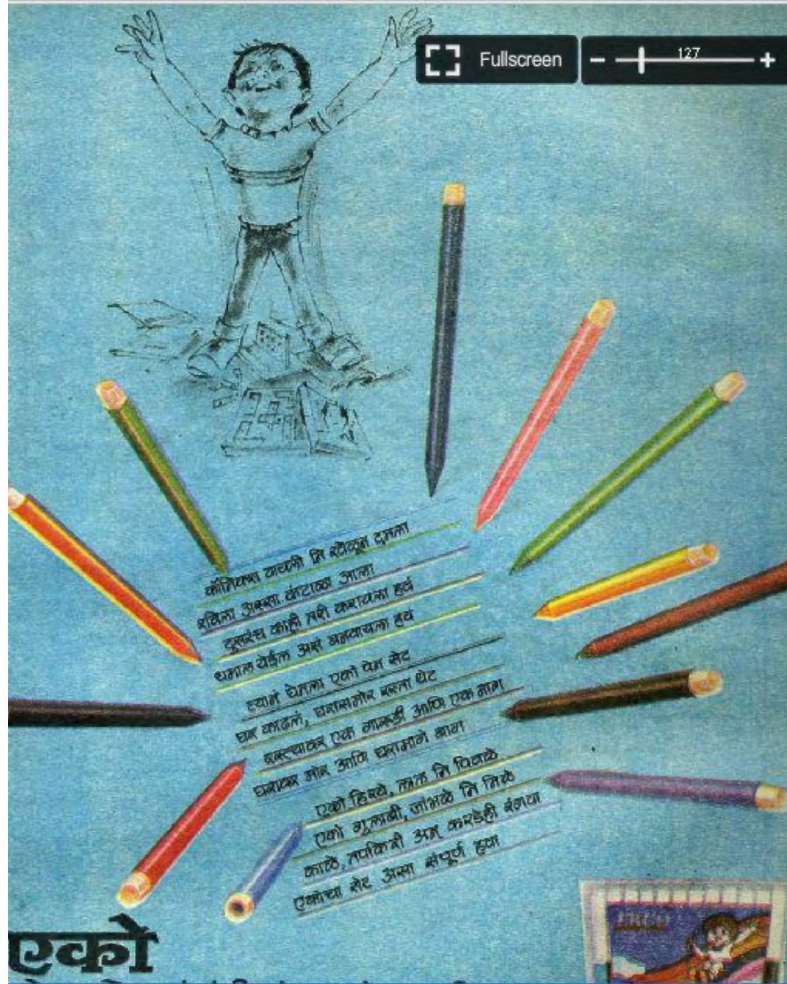 Fullscreen
127
कॉमिक्स वाचली नि खेळून दमला
रविला अस्सा कंटाळा आला
दुसरंच काही तरी करायला हवं
धमाल येईल असं बनवायला हवं
त्यानं घेतला एको पेन सेट
घर काढलं, घरासमोर रस्ता थेट
रस्त्यावर एक गारुडी आणि एक नाग
घरावर मोर आणि घरामागे बाग
एको हिरवे, लाल नि पिवळे
एको गुलाबी, जांभळे नि निळे
काळे, तपकिरी अन् करडेही रंगवा
एकोचा सेट असा संपूर्ण हवा
एको